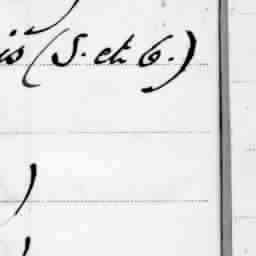 is (S. et G.)
)